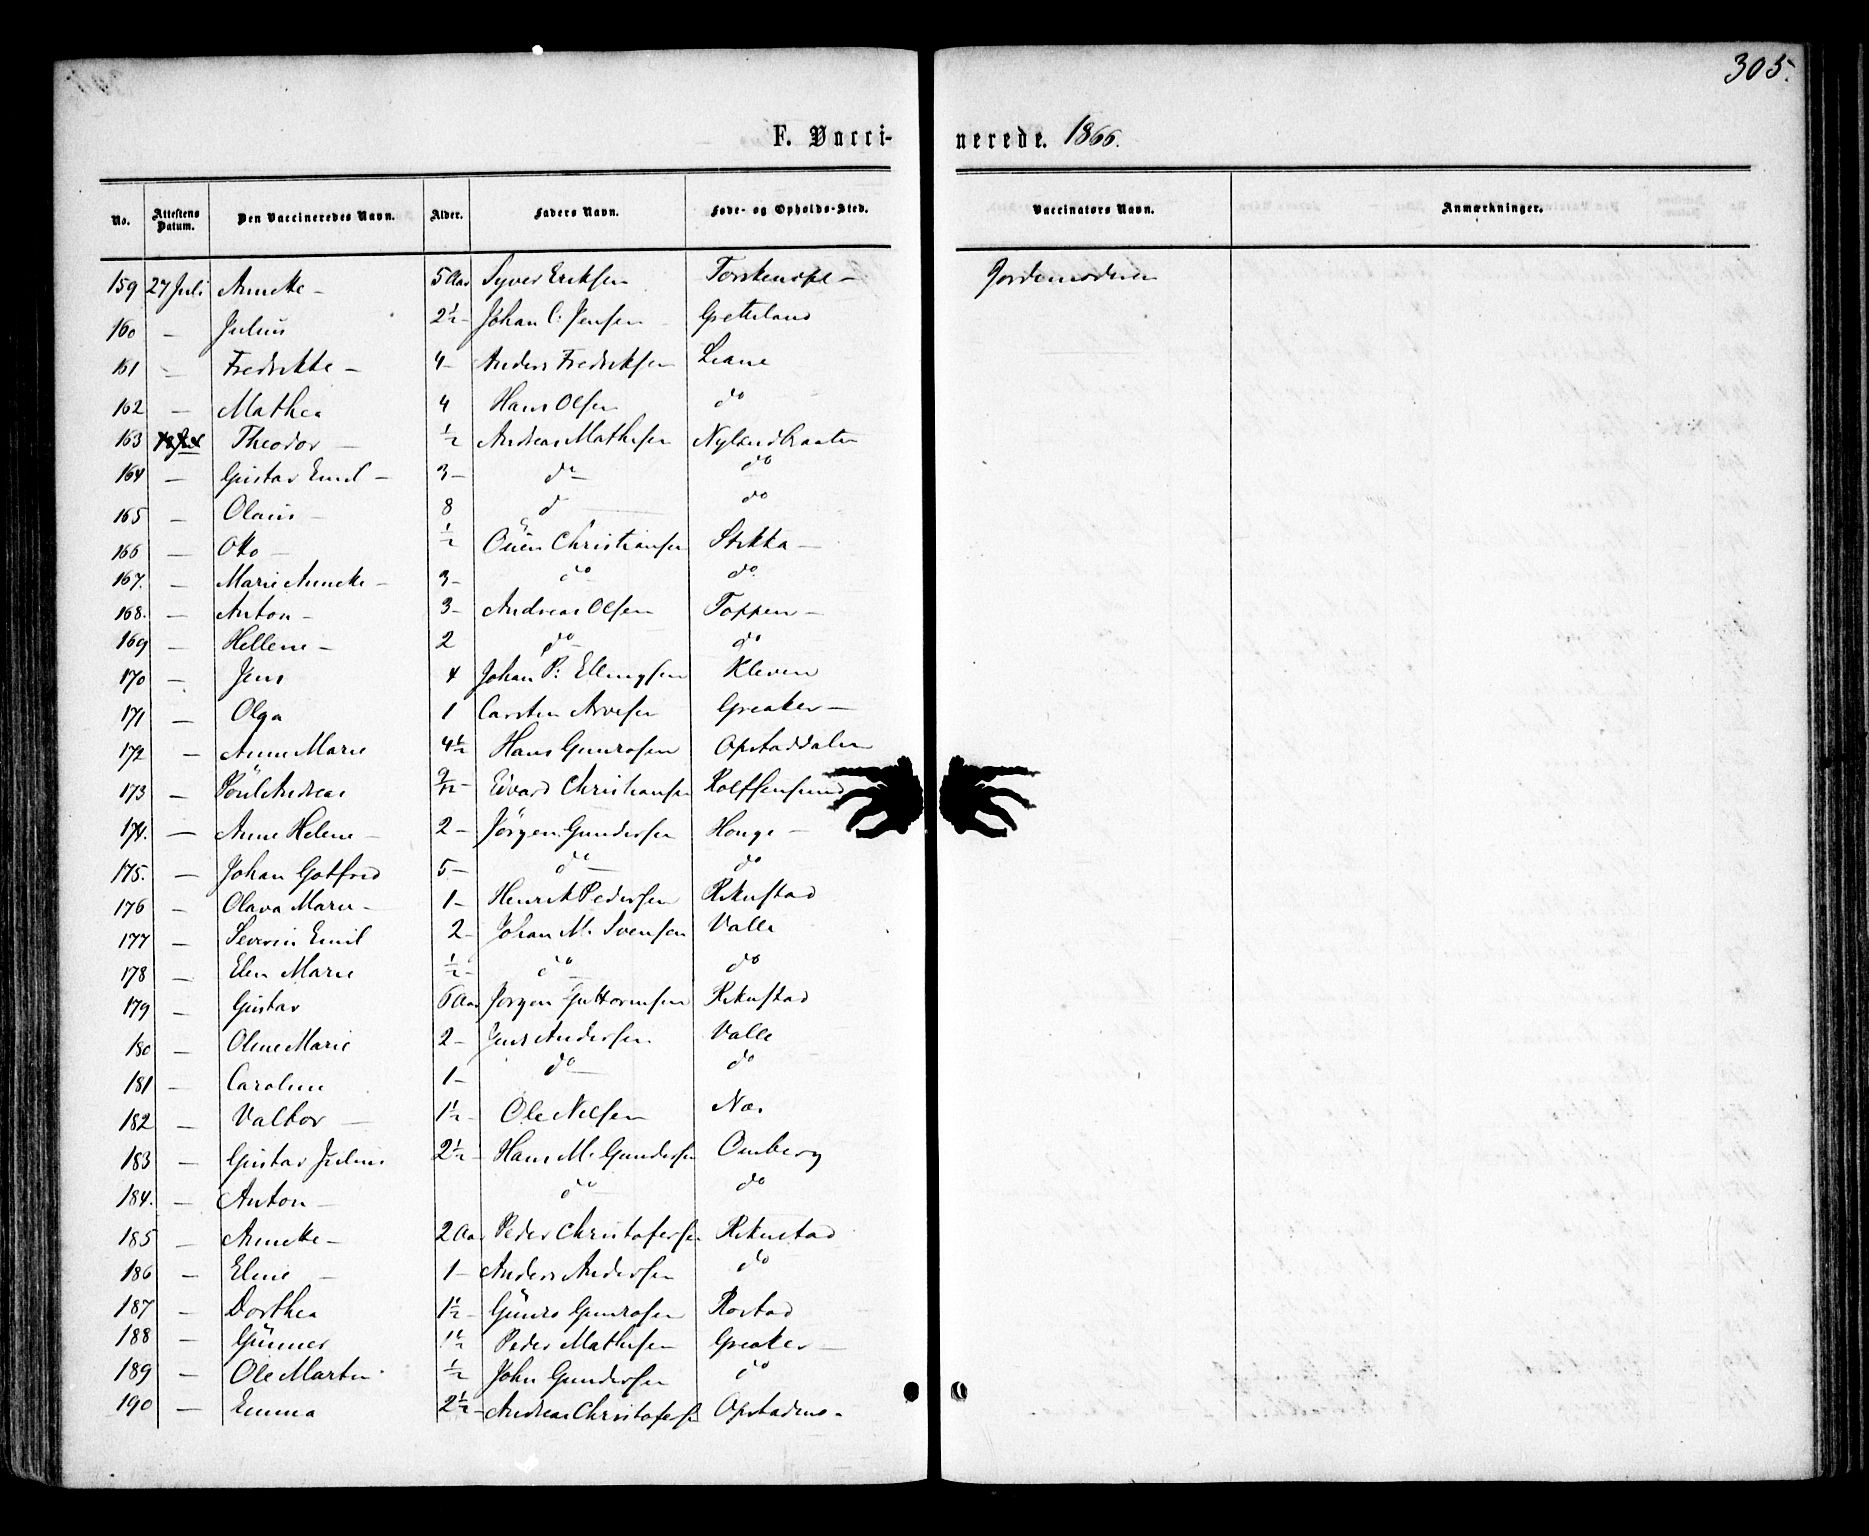 305.
F. Vaccinerede. 1866.
No. Attestens Datum. Den Vaccineredes Navn. Alder. Faders Navn. Føde- og Opholds-Sted. Vaccinators Navn. Anmærkninger.
159 27 Juli Annette - 5 Aar Syver Eriksen Jordemoderen
160 — Julius 2½ - Johan C. Jensen Gretteland
161 — Fredrikke - 4 - Anders Fredriksen Leane
162 — Mathea 4 Hans Olsen do
163 Theodor — ½ Andreas Mathisen Nylandbraaten
164 — Gustav Emil - 3 - do - do
165 — Olaus - 8 d — do
166 — Otto - ½ Ouen Christiansen Stikka —
167. — Marie Annette - 3 - do do.
168. — Anton - 3 - Andreas Olsen Toppen —
169 — Hellene - 2 do - do
170 — Jens 4 Johan P: Ellingsen Kleven
171 — Olga 1 Carsten Arvesen Greaker —
172 — Anne Marie 4½ Hans Gunrosen Opstaddalen
173 — Poul Andreas 9/12 - Edvard Christiansen Rolfsensund
174. — Anne Helene - 2 - Jörgen Gundersen Houge -
175. — Johan Gotfred 5 - do — do
176 — Olava Marie - 1 - Henrik Pedersen Rikustad
177 — Severin Emil 2 - Johan M. Svensen Valle
178 — Elen Marie ½ - do do
179 — Gustav 6 Aar Jørgen Guttormsen Rikustad
180 — Oline Marie 2 - Jens Andersen Valle
181 — Caroline 1 - do — do
182 — Valbor — 1½ - Ole Nilsen Næs
183 — Gustav Julius 2½ - Hans M. Gundersen Omberg
184. — Anton - do do
185 — Annette - 2 Aar Peder Christofersen Rikustad
186 — Eline - 1 - Anders Andersen do
187 — Dorthea 1½ - Gunro Gunrosen Rostad
188 — Gunner 1½ Peder Mathisen Greaker —
189 — Ole Martin ½ - John Gundersen do
190 — Emma 2½ - Andreas Christofersen Opstadmo -